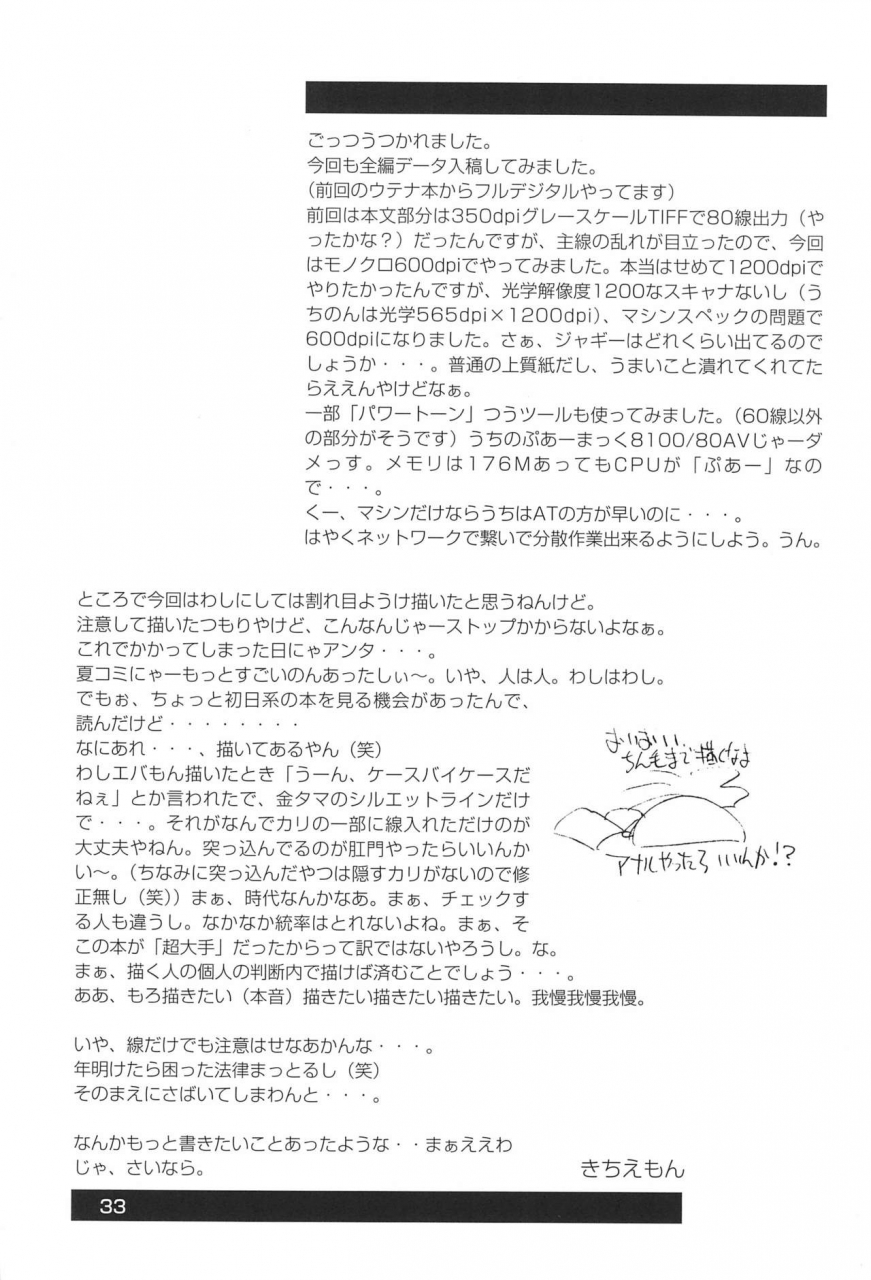 ごっつうつかれました。
今回も全編データ入稿してみました。
(前回のウテナ本からフルデジタルやってます)
前回は本文部分は350dpiグレースケールTIFFで80線出力（や
ったかな？）だったんですが、主線の乱れが目立ったので、今回
はモノクロ600dpiでやってみました。本当はせめて1200dpiで
やりたかったんですが、光学解像度1200なスキャナないし（う
ちのんは光学565dpi×1200dpi)、マシンスペックの問題で
600dpiになりました。さぁ、ジャギーはどれくらい出てるので
しょうか・・・。普通の上質紙だし、うまいこと潰れてくれてた
らええんやけどなぁ。
一部「パワートーン」つうツールも使ってみました。(60線以外
の部分がそうです）うちのぷあーまっく8100/80AVじゃーダ
メっす。メモリは176MあってもCPUが「ぷあー」なの
で・・・。
くー、マシンだけならうちはATの方が早いのに・・・。
はやくネットワークで繋いで分散作業出来るようにしよう。うん。
ところで今回はわしにしては割れ目ようけ描いたと思うねんけど。
注意して描いたつもりやけど、こんなんじゃーストップかからないよなぁ。
これでかかってしまった日にゃアンタ・・・。
夏コミにゃーもっとすごいのんあったしぃ〜。いや、人は人。わしはわし。
でもぉ、ちょっと初日系の本を見る機会があったんで、
読んだけど・・・・・・・・
なにあれ・・・、描いてあるやん（笑）
わしエバもん描いたとき「うーん、ケースバイケースだ
ねぇ」とか言われたで、金タマのシルエットラインだけ
で・・・。それがなんでカリの一部に線入れただけのが
大丈夫やねん。突っ込んでるのが肛門やったらいいんか
い〜。（ちなみに突っ込んだやつは隠すカリがないので修
正無し（笑））まぁ、時代なんかなあ。まぁ、チェックす
る人も違うし。なかなか統率はとれないよね。まぁ、そ
この本が「超大手」だったからって訳ではないやろうし。な。
まぁ、描く人の個人の判断内で描けば済むことでしょう・・・。
ああ、もろ描きたい（本音）描きたい描きたい描きたい。我慢我慢我慢。
おいおい、
ちん毛まで描くなよ
アナルやったら いいんか!?
いや、線だけでも注意はせなあかんな・・・。
年明けたら困った法律まっとるし（笑）
そのまえにさばいてしまわんと・・・。
なんかもっと書きたいことあったような・・まぁええわ
じゃ、さいなら。
きちえもん
33